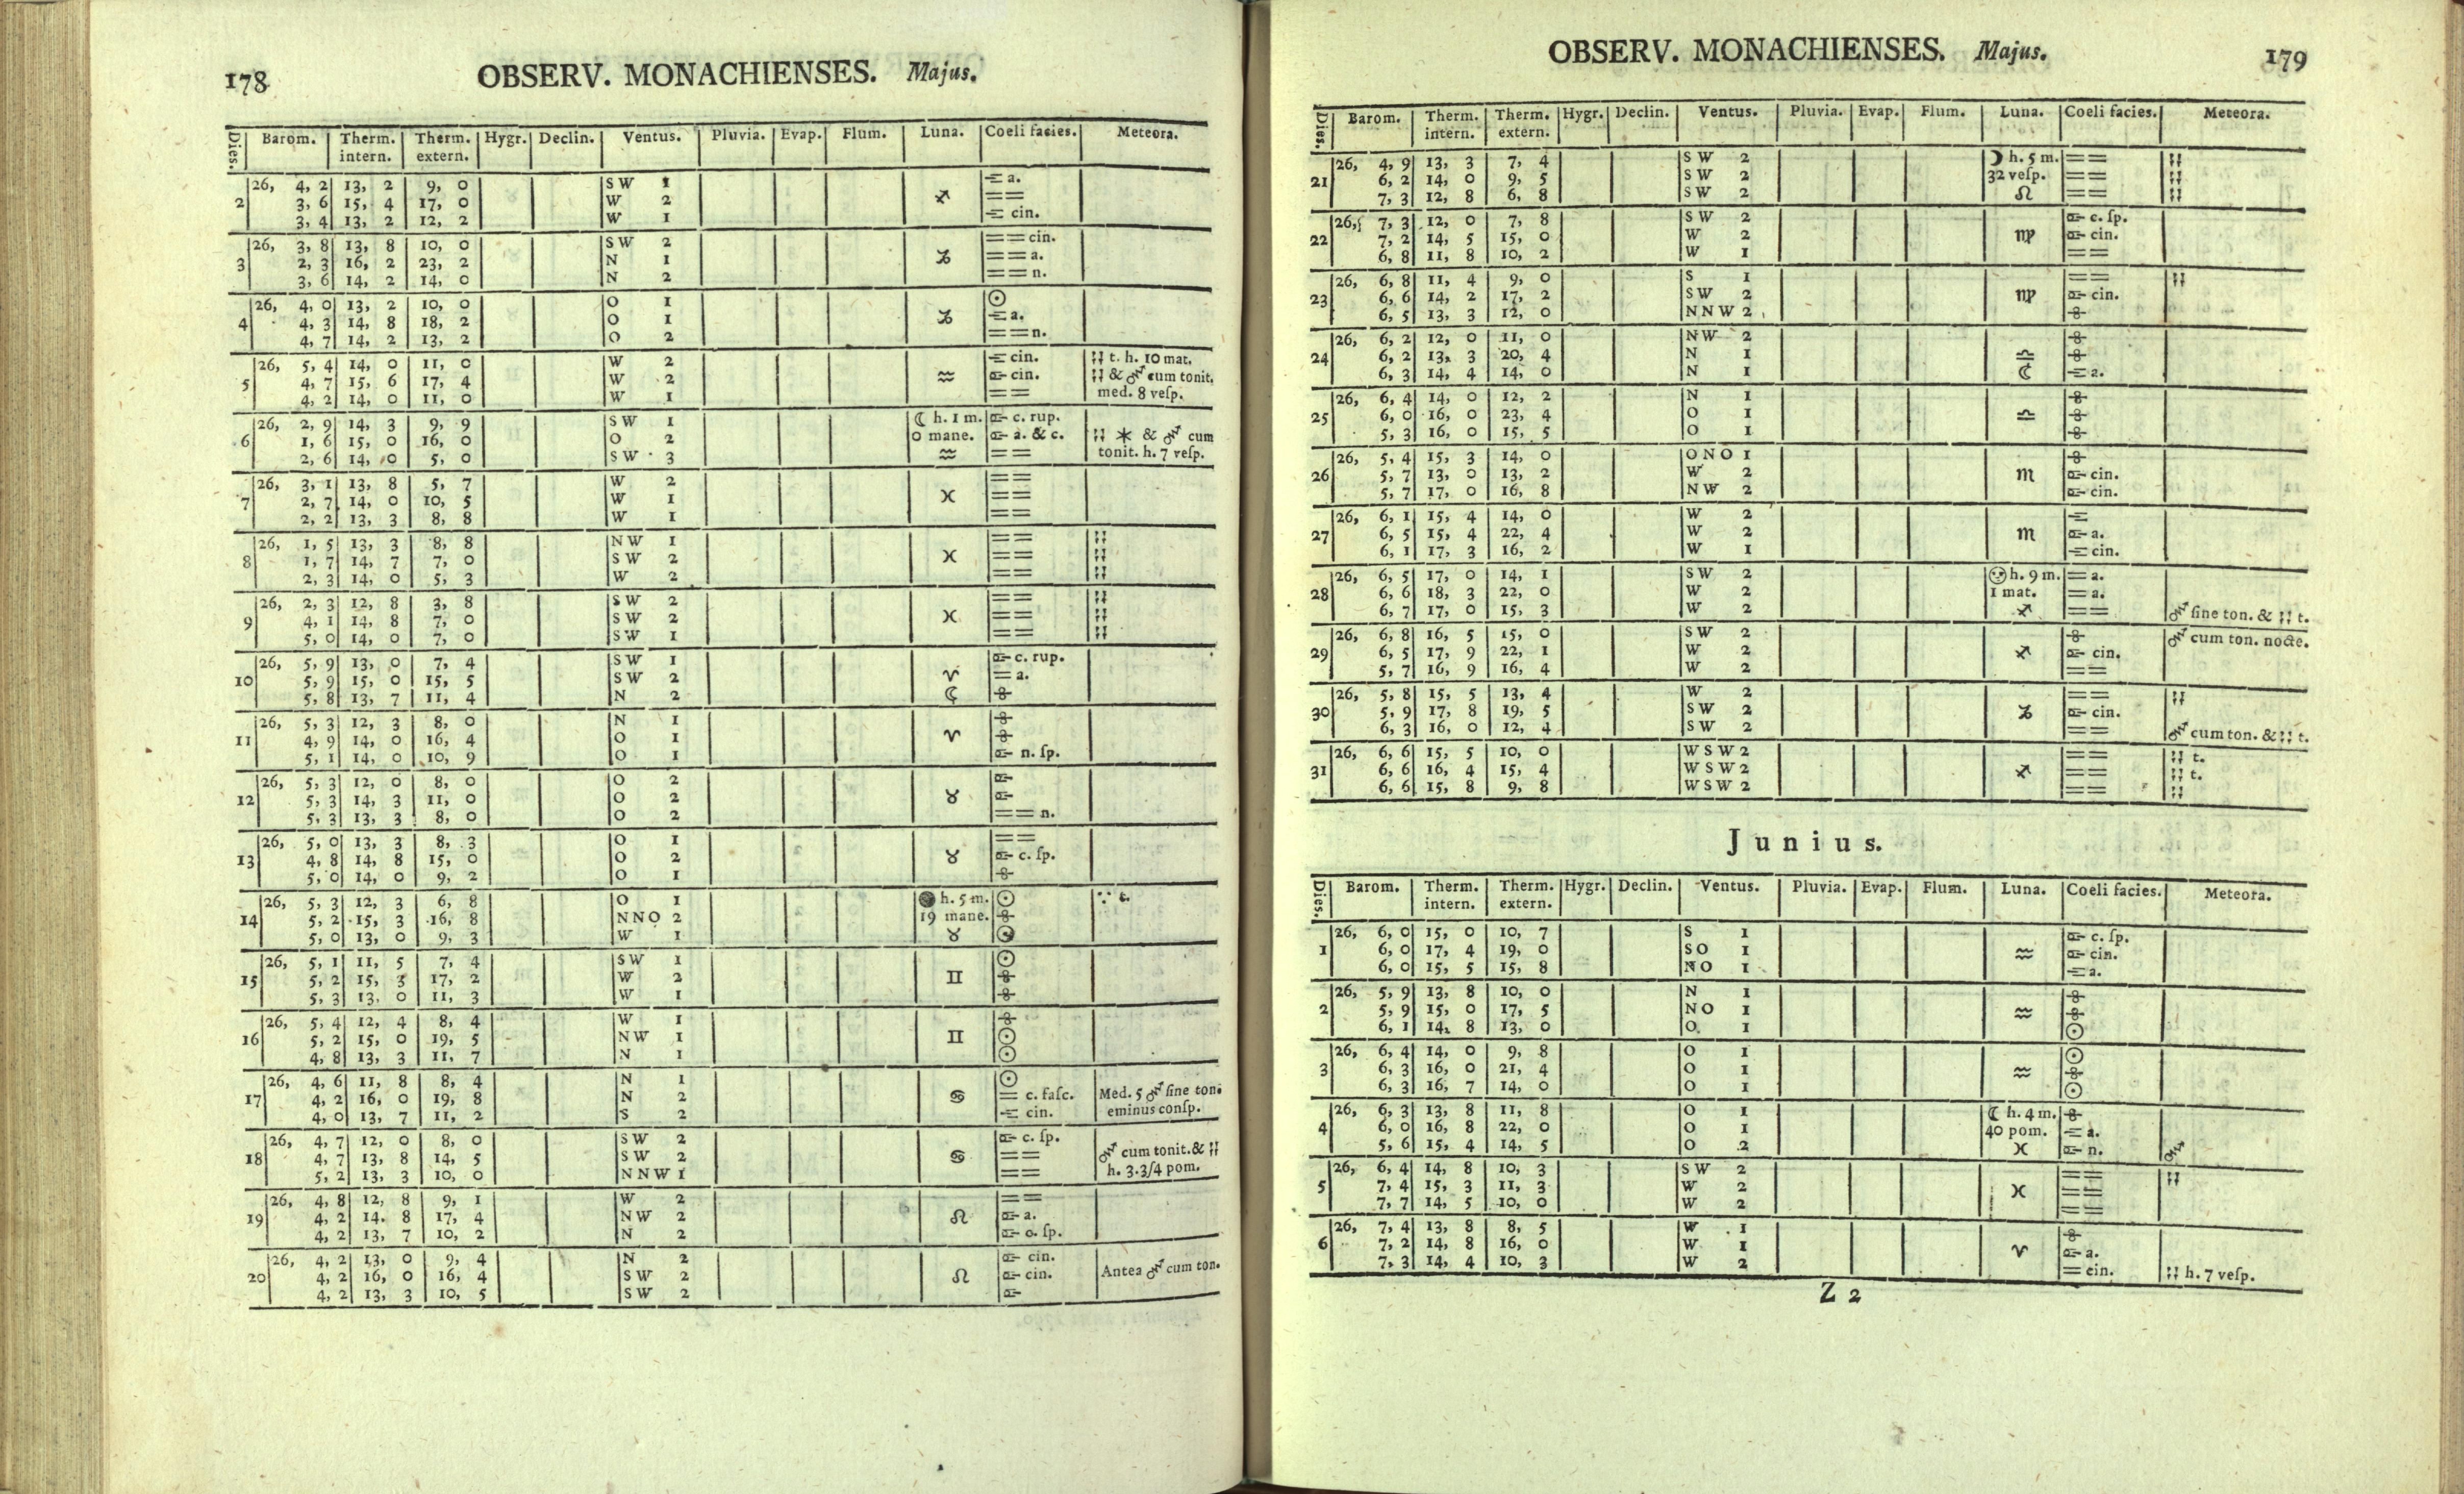 178 OBSERV. MONACHIENSES. Majus.
Dies. Barom. Therm. intern. Therm. extern. Hygr. Declin. Ventus. Pluvia. Evap. Flum. Luna. Coeli facies. Meteora.
2 26, 4, 2 13, 2 9, 0 SW 1 a.
3, 6 15, 4 17, 0 W 2 ♐ ==
3, 4 13, 2 12, 2 W 1 cin.
3 26, 3, 8 13, 8 10, 0 SW 2 == cin.
2, 3 16, 2 23, 2 N 1 ♑ == a.
3, 6 14, 2 14, 0 N 2 == n.
4 26, 4, 0 13, 2 10, 0 O 1 ☉
4, 3 14, 8 18, 2 O 1 ♑ a.
4, 7 14, 2 13, 2 O 2 == n.
5 26, 5, 4 14, 0 11, 0 W 2 cin. t. h. 10 mat.
4, 7 15, 6 17, 4 W 2 ♒ cin. & cum tonit.
4, 2 14, 0 11, 0 W 1 == med. 8 veſp.
6 26, 2, 9 14, 3 9, 9 SW 1 ☾ h. 1 m. c. rup.
1, 6 15, 0 16, 0 O 2 0 mane. a. & c. & cum
2, 6 14, 0 5, 0 SW 3 ♒ == tonit. h. 7 veſp.
7 26, 3, 1 13, 8 5, 7 W 2 ==
2, 7 14, 0 10, 5 W 1 ♓ ==
2, 2 13, 3 8, 8 W 1 ==
8 26, 1, 5 13, 3 8, 8 NW 1 ==
1, 7 14, 7 7, 0 SW 2 ♓ ==
2, 3 14, 0 5, 3 W 2 ==
9 26, 2, 3 12, 8 3, 8 SW 2 ==
4, 1 14, 8 7, 0 SW 2 ♓ ==
5, 0 14, 0 7, 0 SW 1 ==
10 26, 5, 9 13, 0 7, 4 SW 1 c. rup.
5, 9 15, 0 15, 5 SW 2 ♈ = a.
5, 8 13, 7 11, 4 N 2 ☾
11 26, 5, 3 12, 3 8, 0 N 1
4, 9 14, 0 16, 4 O 1 ♈
5, 1 14, 0 10, 9 O 1 n. ſp.
12 26, 5, 3 12, 0 8, 0 O 2
5, 3 14, 3 11, 0 O 2 ♉
5, 3 13, 3 8, 0 O 2 == n.
13 26, 5, 0 13, 3 8, 3 O 1 ==
4, 8 14, 8 15, 0 O 2 ♉ c. ſp.
5, 0 14, 0 9, 2 O 1
14 26, 5, 3 12, 3 6, 8 O 1 ● h. 5 m. ☉ t.
5, 2 15, 3 16, 8 NNO 2 19 mane.
5, 0 13, 0 9, 3 W 1 ♉ ☉
15 26, 5, 1 11, 5 7, 4 SW 1 ☉
5, 2 15, 3 17, 2 W 2 ♊
5, 3 13, 0 11, 3 W 1
16 26, 5, 4 12, 4 8, 4 W 1
5, 2 15, 0 19, 5 NW 1 ♊ ☉
4, 8 13, 3 11, 7 N 1 ☉
17 26, 4, 6 11, 8 8, 4 N 1 ☉
4, 2 16, 0 19, 8 N 2 ♋ = c. faſc. Med. 5 ſine ton.
4, 0 13, 7 11, 2 S 2 cin. eminus conſp.
18 26, 4, 7 12, 0 8, 0 SW 2 c. ſp.
4, 7 13, 8 14, 5 SW 2 ♋ == cum tonit. &
5, 2 13, 3 10, 0 NNW 1 == h. 3. 3/4 pom.
19 26, 4, 8 12, 8 9, 1 W 2 ==
4, 2 14. 8 17, 4 NW 2 ♌ a.
4, 2 13, 7 10, 2 N 2 o. ſp.
20 26, 4, 2 13, 0 9, 4 N 2 cin.
4, 2 16, 0 16, 4 SW 2 ♌ cin. Antea cum ton.
4, 2 13, 3 10, 5 SW 2
OBSERV. MONACHIENSES. Majus. 179
Dies. Barom. Therm. intern. Therm. extern. Hygr. Declin. Ventus. Pluvia. Evap. Flum. Luna. Coeli facies. Meteora.
21 26, 4, 9 13, 3 7, 4 SW 2 ☽ h. 5 m. ==
6, 2 14, 0 9, 5 SW 2 32 veſp. ==
7, 3 12, 8 6, 8 SW 2 ♌ ==
22 26, 7, 3 12, 0 7, 8 SW 2 c. ſp.
7, 2 14, 5 15, 0 W 2 ♍ cin.
6, 8 11, 8 10, 2 W 1 ==
23 26, 6, 8 11, 4 9, 0 S 1 ==
6, 6 14, 2 17, 2 SW 2 ♍ cin.
6, 5 13, 3 12, 0 NNW 2
24 26, 6, 2 12, 0 11, 0 NW 2
6, 2 13, 3 20, 4 N 1 ♎
6, 3 14, 4 14, 0 N 1 ☾ a.
25 26, 6, 4 14, 0 12, 2 N 1
6, 0 16, 0 23, 4 O 1 ♎
5, 3 16, 0 15, 5 O 1
26 26, 5, 4 15, 3 14, 0 ONO 1
5, 7 13, 0 13, 2 W 2 ♏ cin.
5, 7 17, 0 16, 8 NW 2 cin.
27 26, 6, 1 15, 4 14, 0 W 2
6, 5 15, 4 22, 4 W 2 ♏ a.
6, 1 17, 3 16, 2 W 1 cin.
28 26, 6, 5 17, 0 14, 1 SW 2 h. 9 m. = a.
6, 6 18, 3 22, 0 W 2 1 mat. = a.
6, 7 17, 0 15, 3 W 2 ♐ == ſine ton. & t.
29 26, 6, 8 16, 5 15, 0 SW 2 cum ton. nocte.
6, 5 17, 9 22, 1 W 2 ♐ cin.
5, 7 16, 9 16, 4 W 2 ==
30 26, 5, 8 15, 5 13, 4 W 2 ==
5, 9 17, 8 19, 5 SW 2 ♑ cin.
6, 3 16, 0 12, 4 SW 2 == cum ton. & t.
31 26, 6, 6 15, 5 10, 0 WSW 2 == t.
6, 6 16, 4 15, 4 WSW 2 ♐ == t.
6, 6 15, 8 9, 8 WSW 2 ==
Junius.
Dies. Barom. Therm. intern. Therm. extern. Hygr. Declin. Ventus. Pluvia. Evap. Flum. Luna. Coeli facies. Meteora.
1 26, 6, 0 15, 0 10, 7 S 1 c. ſp.
6, 0 17, 4 19, 0 SO 1 ♒ cin.
6, 0 15, 5 15, 8 NO 1 a.
2 26, 5, 9 13, 8 10, 0 N 1
5, 9 15, 0 17, 5 NO 1 ♒
6, 1 14, 8 13, 0 O. 1 ☉
3 26, 6, 4 14, 0 9, 8 O 1 ☉
6, 3 16, 0 21, 4 O 1 ♒
6, 3 16, 7 14, 0 O 1 ☉
4 26, 6, 3 13, 8 11, 8 O 1 ☾ h. 4 m.
6, 0 16, 8 22, 0 O 1 40 pom. a.
5, 6 15, 4 14, 5 O 2 ♓ n.
5 26, 6, 4 14, 8 10, 3 SW 2 ==
7, 4 15, 3 11, 3 W 2 ♓ ==
7, 7 14, 5 10, 0 W 2 ==
6 26, 7, 4 13, 8 8, 5 W 1
7, 2 14, 8 16, 0 W 1 ♈ a.
7, 3 14, 4 10, 3 W 2 = cin. h. 7 veſp.
Z 2